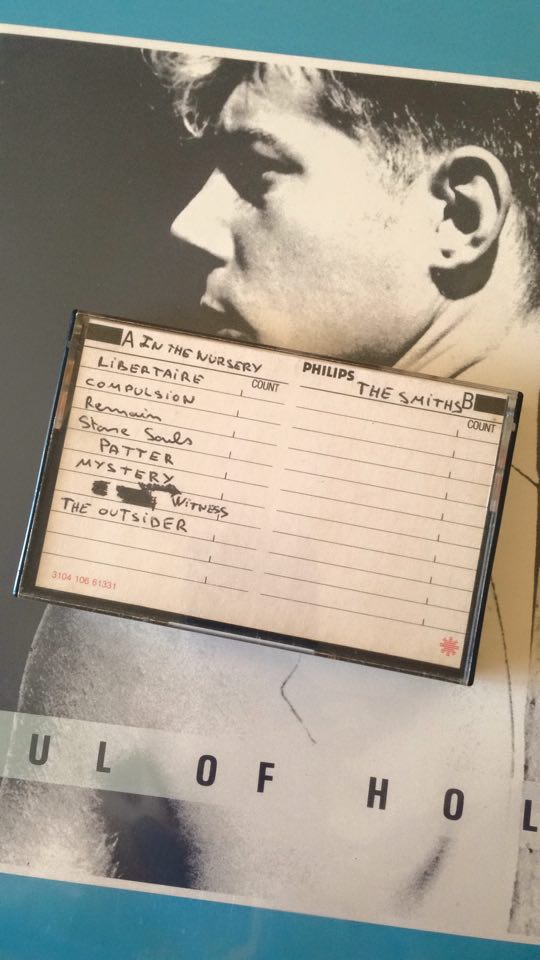 A IN THE NURSERY
COUNT
LIBERTAIRE
COMPULSION
Remain
Stone Souls
PATTER
MYSTERY
WITNESS
THE OUTSIDER
3104 106 61331
PHILIPS
THE SMITHS B
COUNT
UL OF HOL